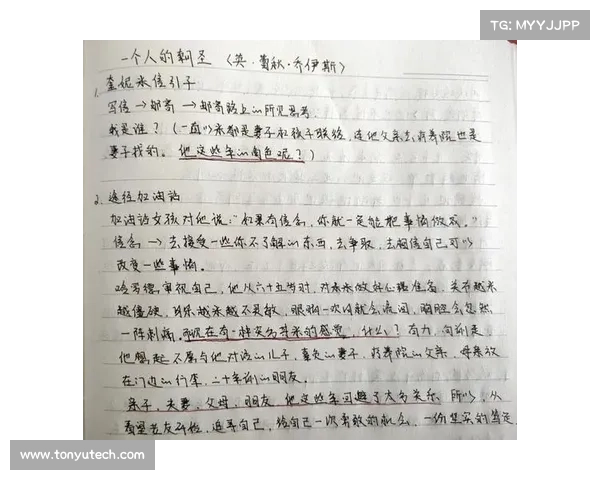 TG: MYYJJPP
一个人的朝圣 〈英·蕾秋·乔伊斯〉
1. 奎妮来信引子
写信 → 邮寄 → 邮寄路上in所见思考.
我是谁？(一直以来都是妻子和孩子联络, 连他父亲去疗养院也是
妻子找的。他这些年in角色呢？)
2. 途径加油站
加油站女孩对他说："如果有信念, 你就一定能把事情做成。"
信念 → 去接受一些你不了解in东西, 去争取, 去相信自己可以
改变一些事情。
哈罗德审视自己, 他从六十五岁时, 对未来做好心理准备, 关节越来
越僵硬, 耳朵越来越不灵敏, 眼睛一吹风就会流泪, 胸腔会忽然
一阵刺痛. 可现在有一种突如其来的感觉, 什么？有力, 向前走
他想起不屑与他对话in儿子, in妻子, 疗养院in父亲, 母亲放
在门边in行李, 二十年前in朋友.
亲子, 夫妻, 父母, 朋友, 他这些年回避了太多关系, 所以, 从
看望老友开始, 追寻自己, 给自己一次勇敢的机会, 一份坚实的笃定
www.tonyutech.com